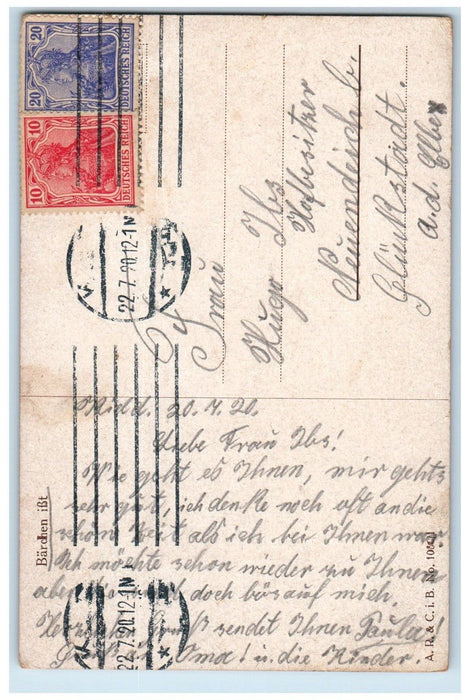 20
20
DEUTSCHES REICH
10
10
DEUTSCHES REICH
22.7.20.12-1N
Frau
Hugo Ibs
Hofbesitzer
Neuendeich b.
Glückstadt.
a.d. Elbe
Midd. 20.7.20.
Liebe Frau Ibs!
Wie geht es Ihnen, mir gehts
sehr gut, ich denke noch oft an die
schöne Zeit als ich bei Ihnen war
Ich möchte schon wieder zu Ihnen
aber doch bös auf mich
sendet Ihnen Paula!
Oma! u. die Kinder.
22.7.20.12-1N
Bärchen ißt
A. R. & C. i. B. No.